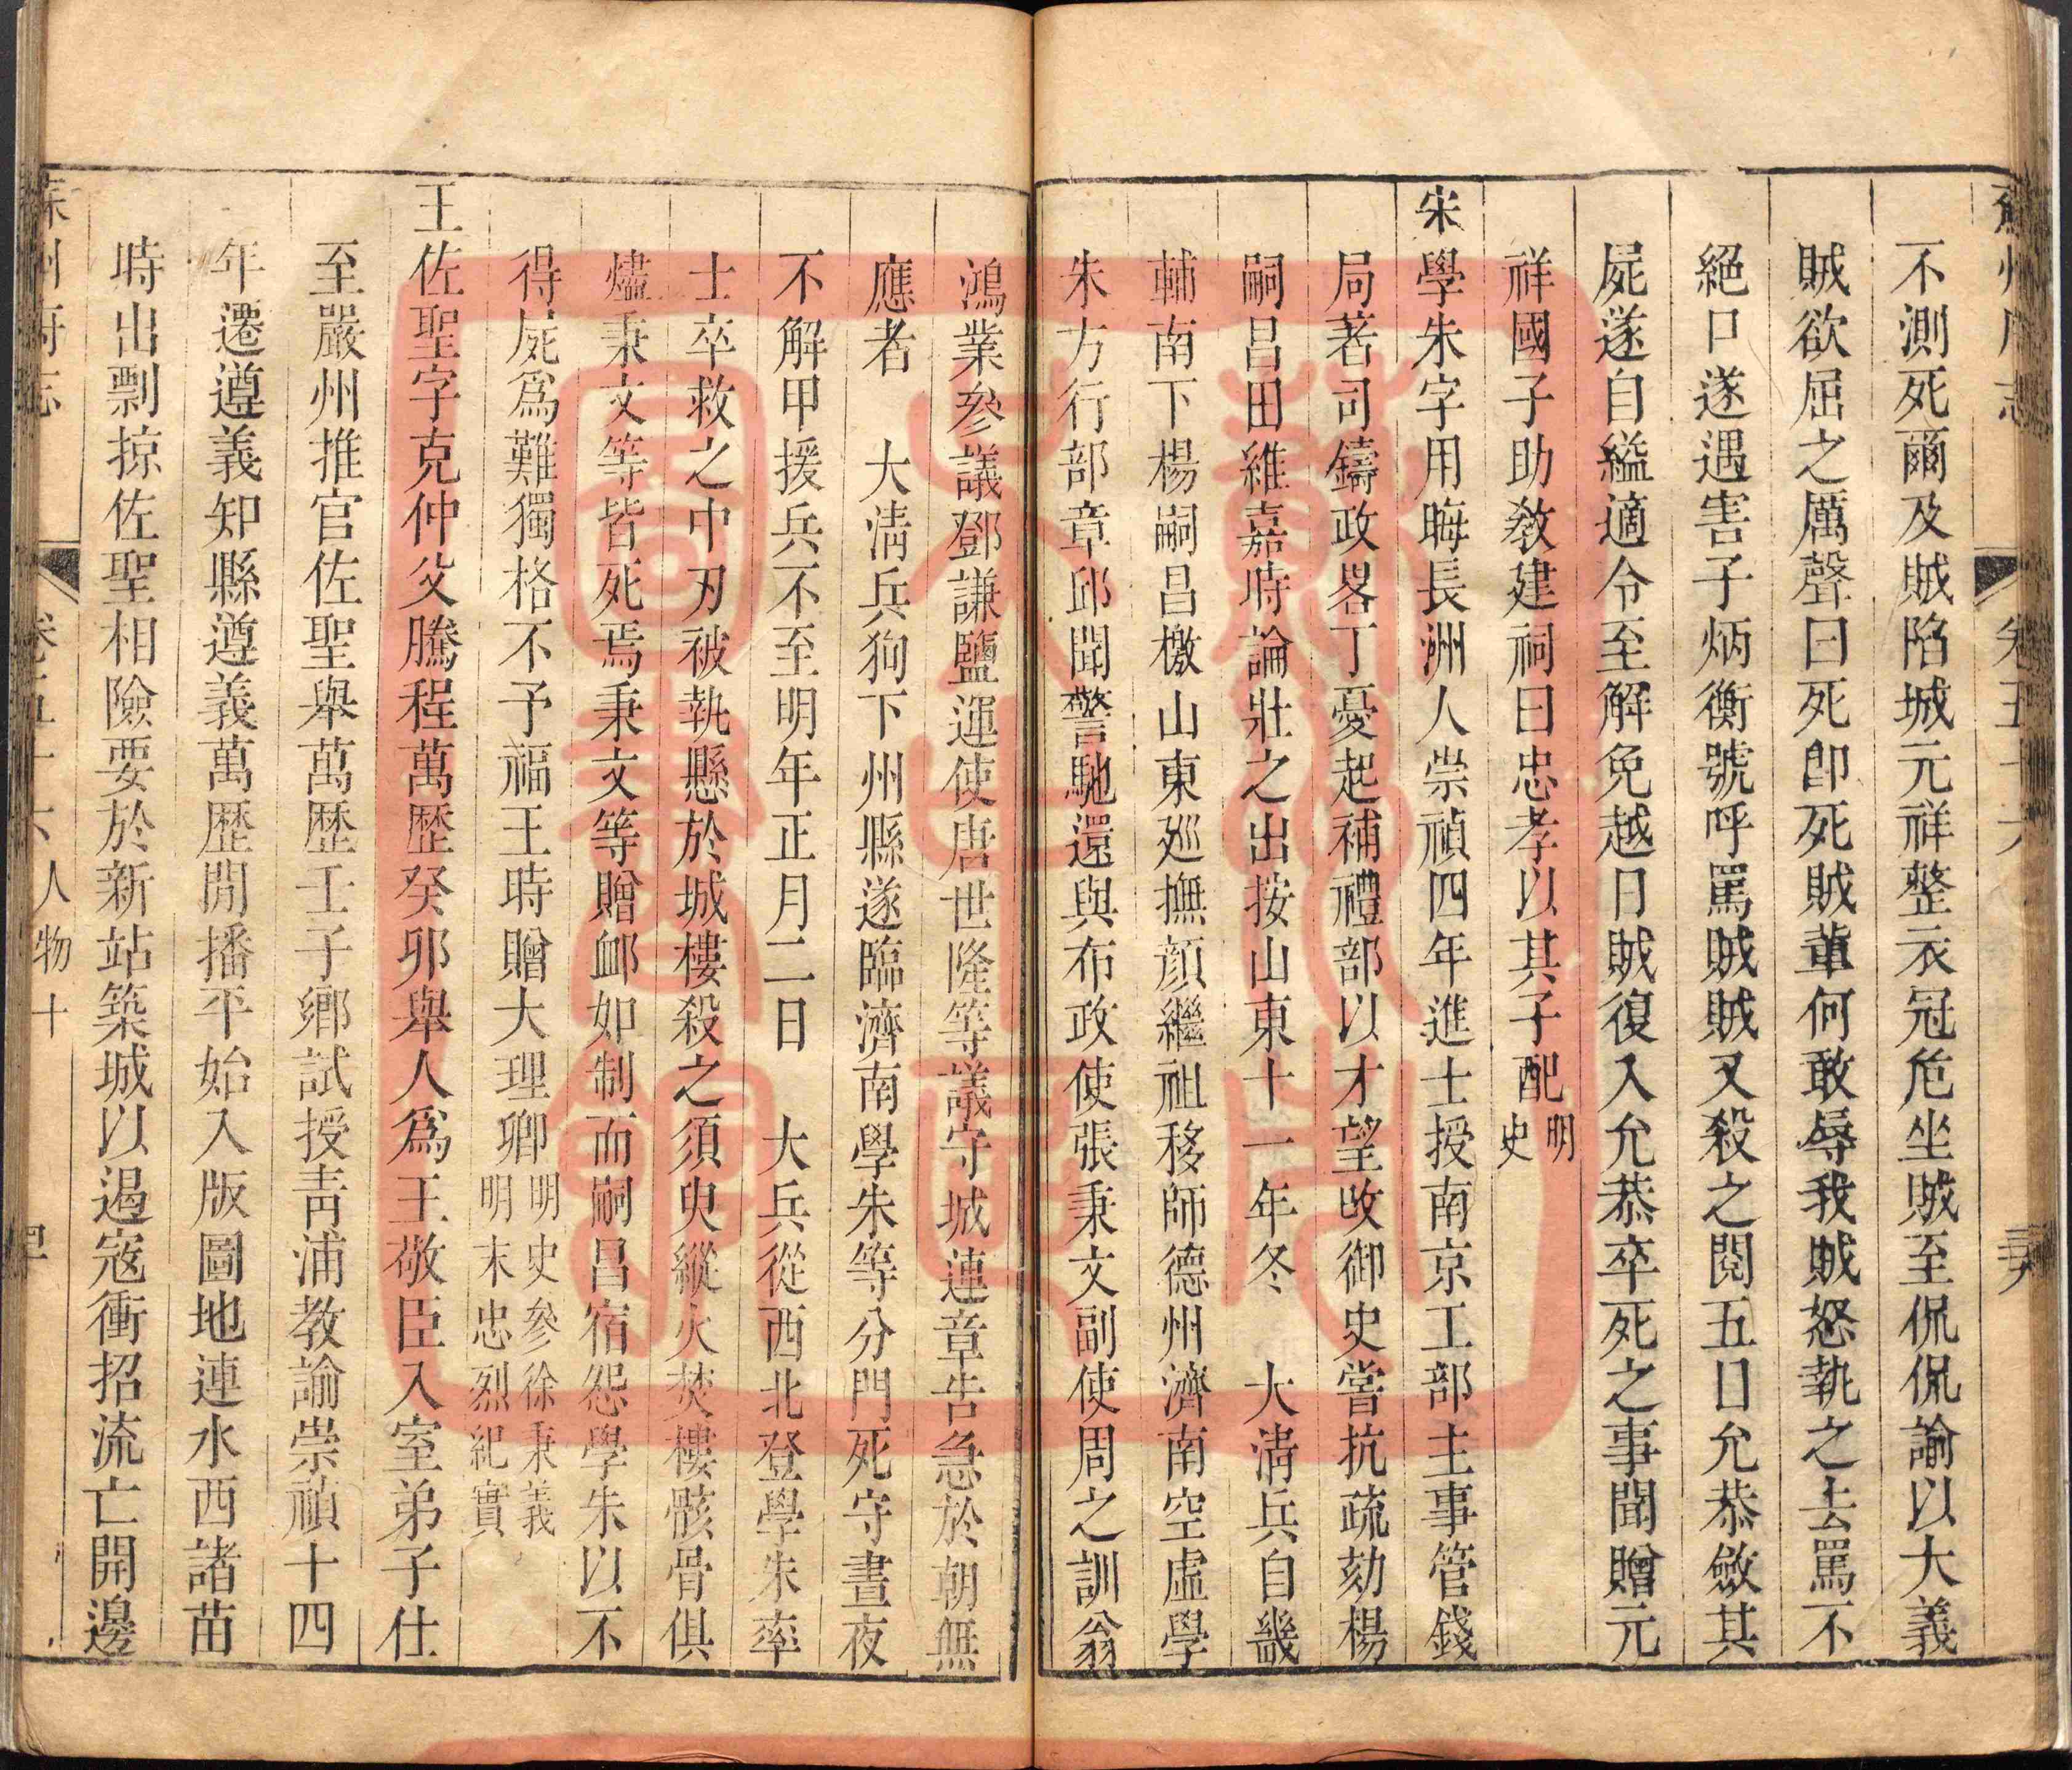 不測死爾及賊陷城元祥整衣冠危坐賊至侃侃諭以大義
賊欲屈之厲聲曰死卽死賊輩何敢辱我賊怒執之去罵不
絕口遂遇害子炳衡號呼罵賊賊又殺之閱五日允恭斂其
屍遂自縊適令至解免越日賊復入允恭卒死之事聞贈元
祥國子助敎建祠曰忠孝以其子配明史
宋學朱字用晦長洲人崇禎四年進士授南京工部主事管錢
局著司鑄政畧丁憂起補禮部以才望改御史嘗抗疏劾楊
嗣昌田維嘉時論壯之出按山東十一年冬　大淸兵自畿
輔南下楊嗣昌檄山東廵撫顏繼祖移師德州濟南空虛學
朱方行部章邱聞警馳還與布政使張秉文副使周之訓翁
鴻業參議鄧謙鹽運使唐世隆等議守城連章告急於朝無
應者　大淸兵狥下州縣遂臨濟南學朱等分門死守晝夜
不解甲援兵不至明年正月二日　大兵從西北登學朱率
士卒救之中刃被執懸於城樓殺之須臾縱火焚樓骸骨俱
燼秉文等皆死焉秉文等贈䘏如制而嗣昌宿怨學朱以不
得屍爲難獨格不予福王時贈大理卿明史參徐秉義
明末忠烈紀實
王佐聖字克仲父騰程萬歷癸卯舉人爲王敬臣入室弟子仕
至嚴州推官佐聖舉萬歷壬子鄉試授靑浦教諭崇禎十四
年遷遵義知縣遵義萬歷閒播平始入版圖地連水西諸苗
時出剽掠佐聖相險要於新站築城以遏寇衝招流亡開邊
蘇州府志
卷五十六人物十